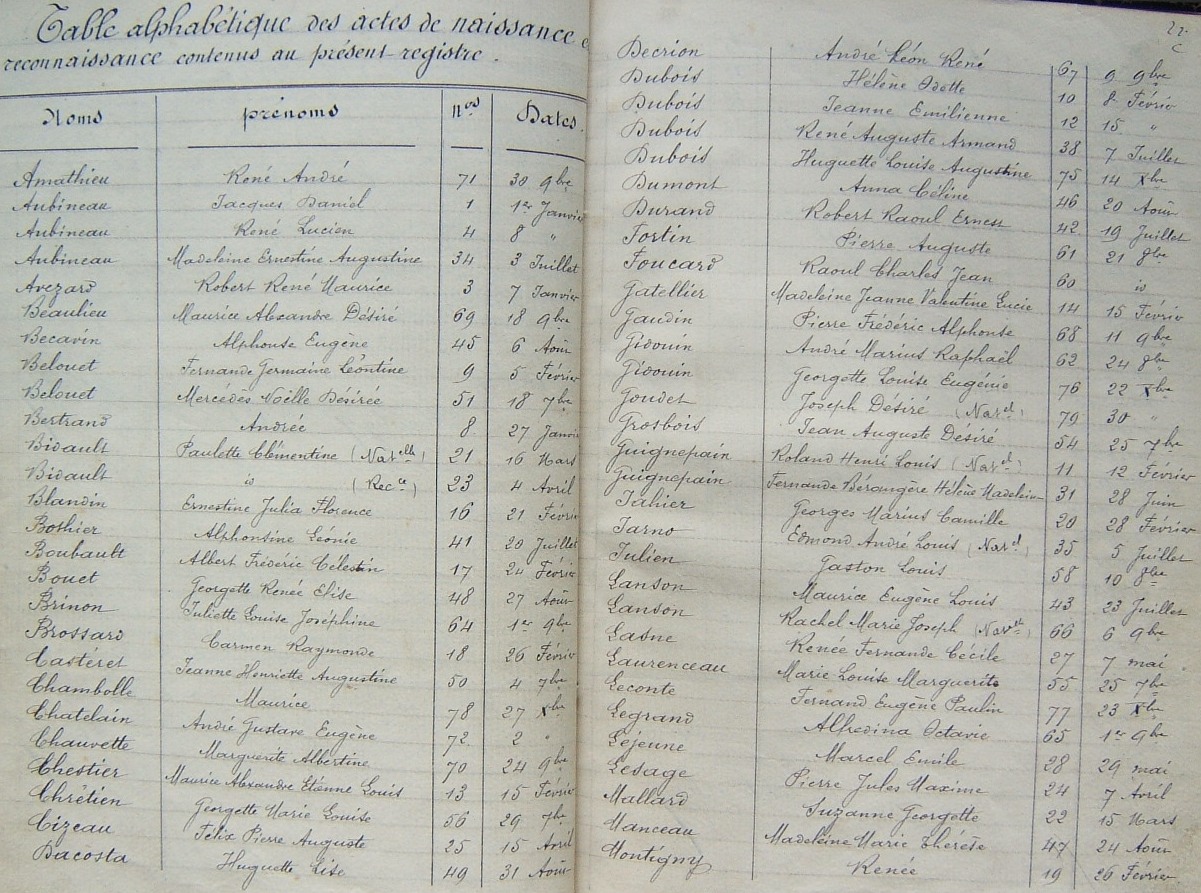 Table alphabétique des actes de naissance e
reconnaissance contenus au présent registre.
Noms prénoms Nos Dates
Amathieu René André 71 30 9bre
Aubineau Jacques Daniel 1 1er Janvier
Aubineau René Lucien 4 8 "
Aubineau Madeleine Ernestine Augustine 34 3 Juillet
Avezard Robert René Maurice 3 7 Janvier
Beaulieu Maurice Alexandre Désiré 69 18 9bre
Becavin Alphonse Eugène 45 6 Août
Belouet Fernande Germaine Léontine 9 5 Février
Belouet Mercédès Noëlle Désirée 51 18 7bre
Bertrand Andrée 8 27 Janvi
Bidault Paulette Clémentine (Natelle) 21 16 Mars
Bidault id (Recce) 23 4 Avril
Blandin Ernestine Julia Florence 16 21 Févrie
Bothier Alphonsine Léonie 41 20 Juillet
Boubault Albert Frédéric Célestin 17 24 Février
Bouet Georgette Renée Elise 48 27 Août
Brinon Juliette Louise Joséphine 64 1er 9bre
Brossard Carmen Raymonde 18 26 Février
Castéret Jeanne Henriette Augustine 50 4 7bre
Chambolle Maurice 78 27 Xbre
Chatelain André Gustave Eugène 72 2 "
Chauvette Marguerite Albertine 70 24 9bre
Chestier Maurice Alexandre Etienne Louis 13 15 Février
Chrétien Georgette Marie Louise 56 29 7bre
Cizeau Félix Pierre Auguste 25 15 Avril
Dacosta Huguette Lise 49 31 Août
Decrion André Léon René 67 9 9bre
Dubois Hélène Odette 10 8 Févrir
Dubois Jeanne Emilienne 12 15 "
Dubois René Auguste Armand 38 7 Juillet
Dubois Huguette Louise Augustine 75 14 Xbre
Dumont Anna Céline 46 20 Août
Durand Robert Raoul Ernest 42 19 Juillet
Fortin Pierre Auguste 61 21 8bre
Foucard Raoul Charles Jean 60 id
Gatellier Madeleine Jeanne Valentine Lucie 14 15 Févrir
Gaudin Pierre Frédéric Alphonse 68 11 9bre
Gidouin André Marius Raphaël 62 24 8bre
Gidouin Georgette Louise Eugénie 76 22 Xbre
Goudet Joseph Désiré (Natel) 79 30 "
Grosbois Jean Auguste Désiré 54 25 7bre
Guignepain Roland Henri Louis (Natel) 11 12 Février
Guignepain Fernande Bérangère Hélène Madeleine 31 28 Juin
Jahier Georges Marius Camille 20 28 Février
Jarno Edmond André Louis (Natel) 35 5 Juillet
Julien Gaston Louis 58 10 8bre
Lanson Maurice Eugène Louis 43 23 Juillet
Lanson Rachel Marie Joseph (Natelle) 66 6 9bre
Lasne Renée Fernande Cécile 27 7 mai
Laurenceau Marie Louise Marguerite 55 25 7bre
Leconte Fernand Eugène Paulin 77 23 Xbre
Legrand Alfredina Octavie 65 1er 9bre
Lejeune Marcel Emile 28 29 mai
Lesage Pierre Jules Maxime 24 7 Avril
Mallard Suzanne Georgette 22 15 Mars
Manceau Madeleine Marie Thérèse 47 24 Août
Montigny Renée 19 26 Février